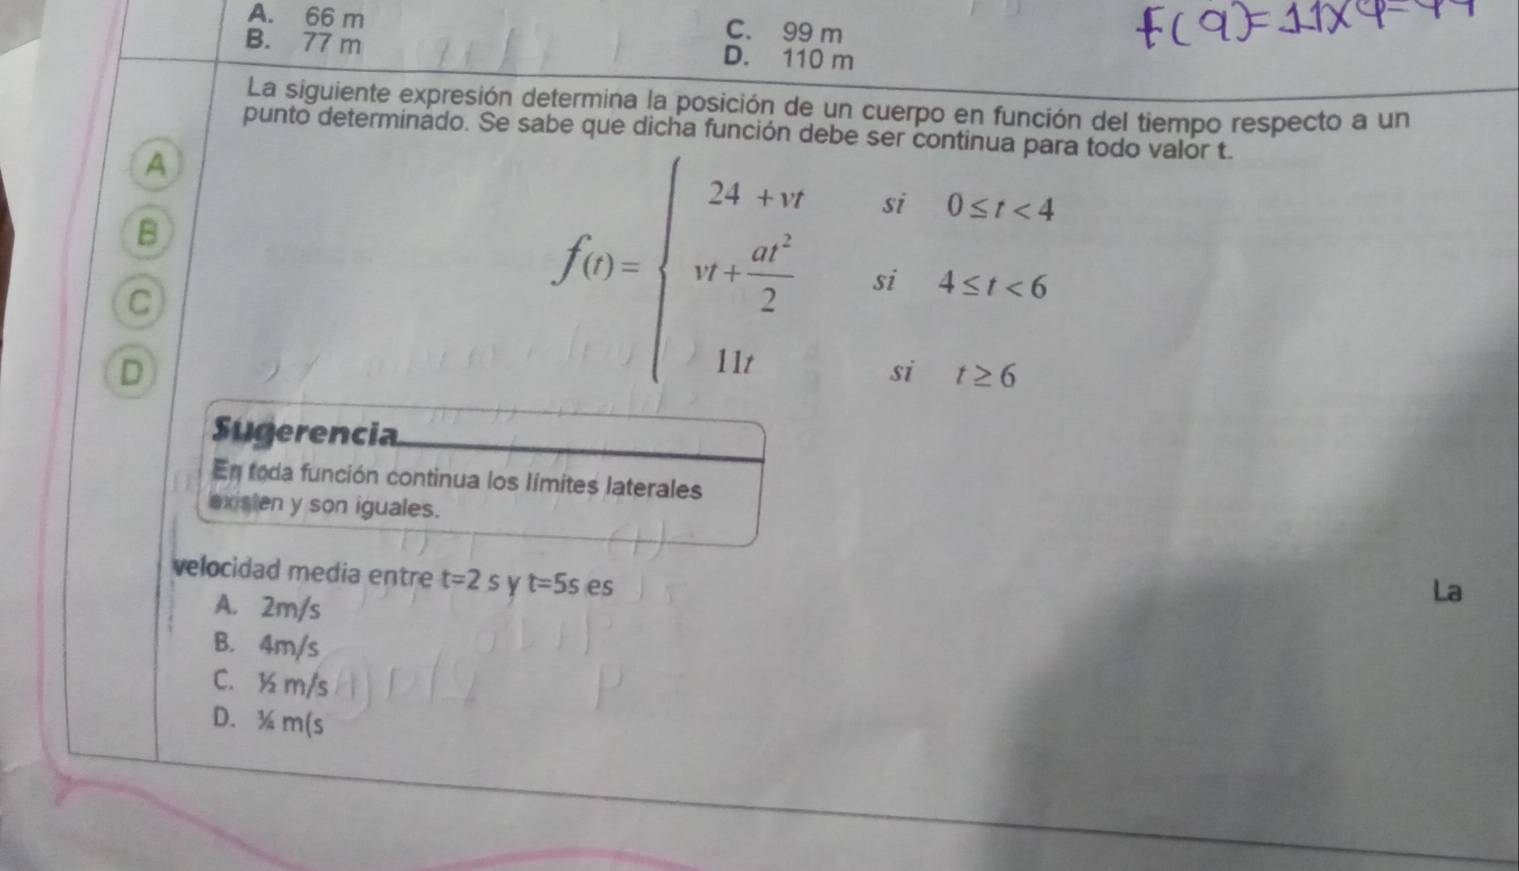 A. 66 m
B. 77 m
C. 99 m
D. 110 m
f(9)=11x9=99
La siguiente expresión determina la posición de un cuerpo en función del tiempo respecto a un
punto determinado. Se sabe que dicha función debe ser continua para todo valor t.
A
B
C
D
24 + vt si 0 ≤ t < 4
f(t) = vt + at²/2 si 4 ≤ t < 6
11t si t ≥ 6
Sugerencia
En toda función continua los límites laterales
existen y son iguales.
La
velocidad media entre t=2 s y t=5s es
A. 2m/s
B. 4m/s
C. ½ m/s
D. ¼ m(s